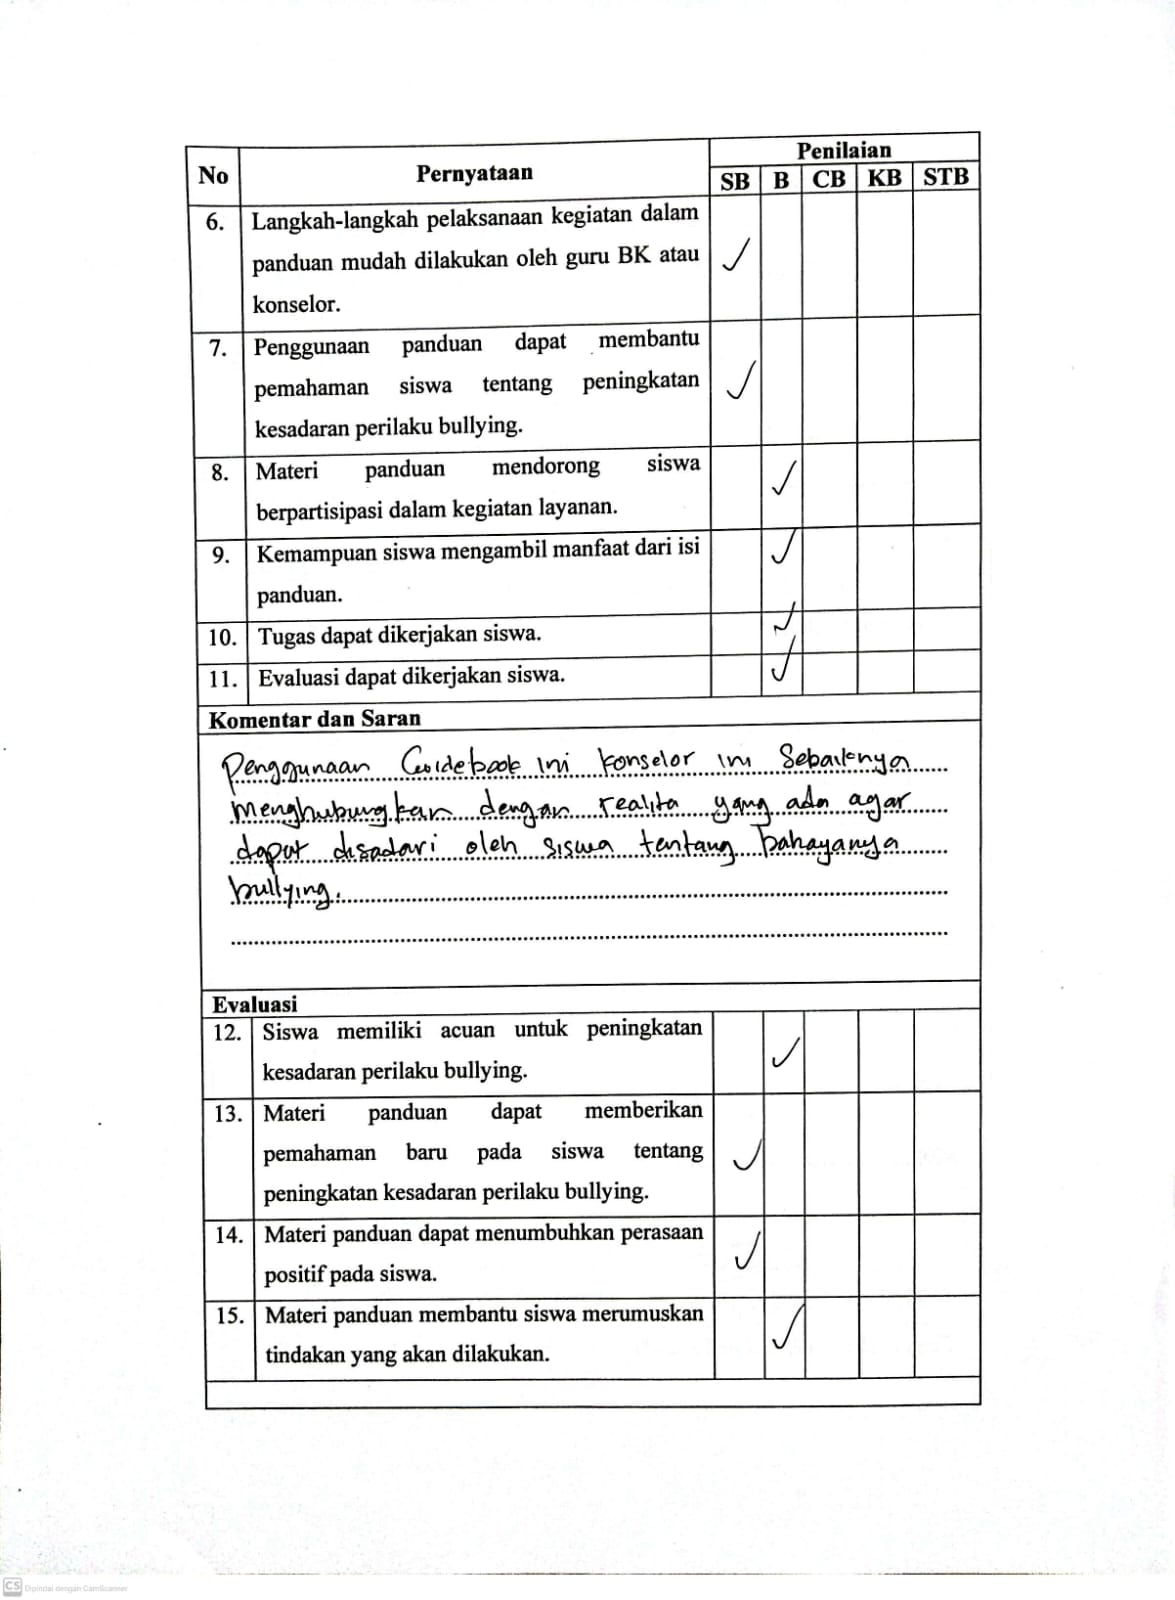 No Pernyataan Penilaian
SB B CB KB STB
6. Langkah-langkah pelaksanaan kegiatan dalam
panduan mudah dilakukan oleh guru BK atau
konselor.
✓
7. Penggunaan panduan dapat membantu
pemahaman siswa tentang peningkatan
kesadaran perilaku bullying.
✓
8. Materi panduan mendorong siswa
berpartisipasi dalam kegiatan layanan.
✓
9. Kemampuan siswa mengambil manfaat dari isi
panduan.
✓
10. Tugas dapat dikerjakan siswa. ✓
11. Evaluasi dapat dikerjakan siswa. ✓
Komentar dan Saran
Penggunaan Guidebook ini konselor ini Sebaiknya
menghubungkan dengan realita yang ada agar
dapat disadari oleh siswa tentang bahayanya
bullying.
Evaluasi
12. Siswa memiliki acuan untuk peningkatan
kesadaran perilaku bullying.
✓
13. Materi panduan dapat memberikan
pemahaman baru pada siswa tentang
peningkatan kesadaran perilaku bullying.
✓
14. Materi panduan dapat menumbuhkan perasaan
positif pada siswa.
✓
15. Materi panduan membantu siswa merumuskan
tindakan yang akan dilakukan.
✓
CS Dipindai dengan CamScanner